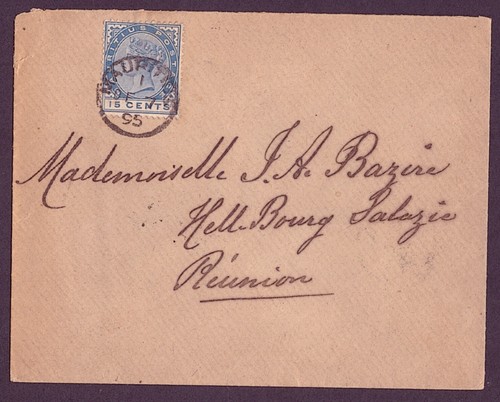 MAURITIUS POSTAGE
15 CENTS
MAURITIUS
1
95
Mademoiselle J. A. Bazire
Hell-Bourg Salazie
Réunion